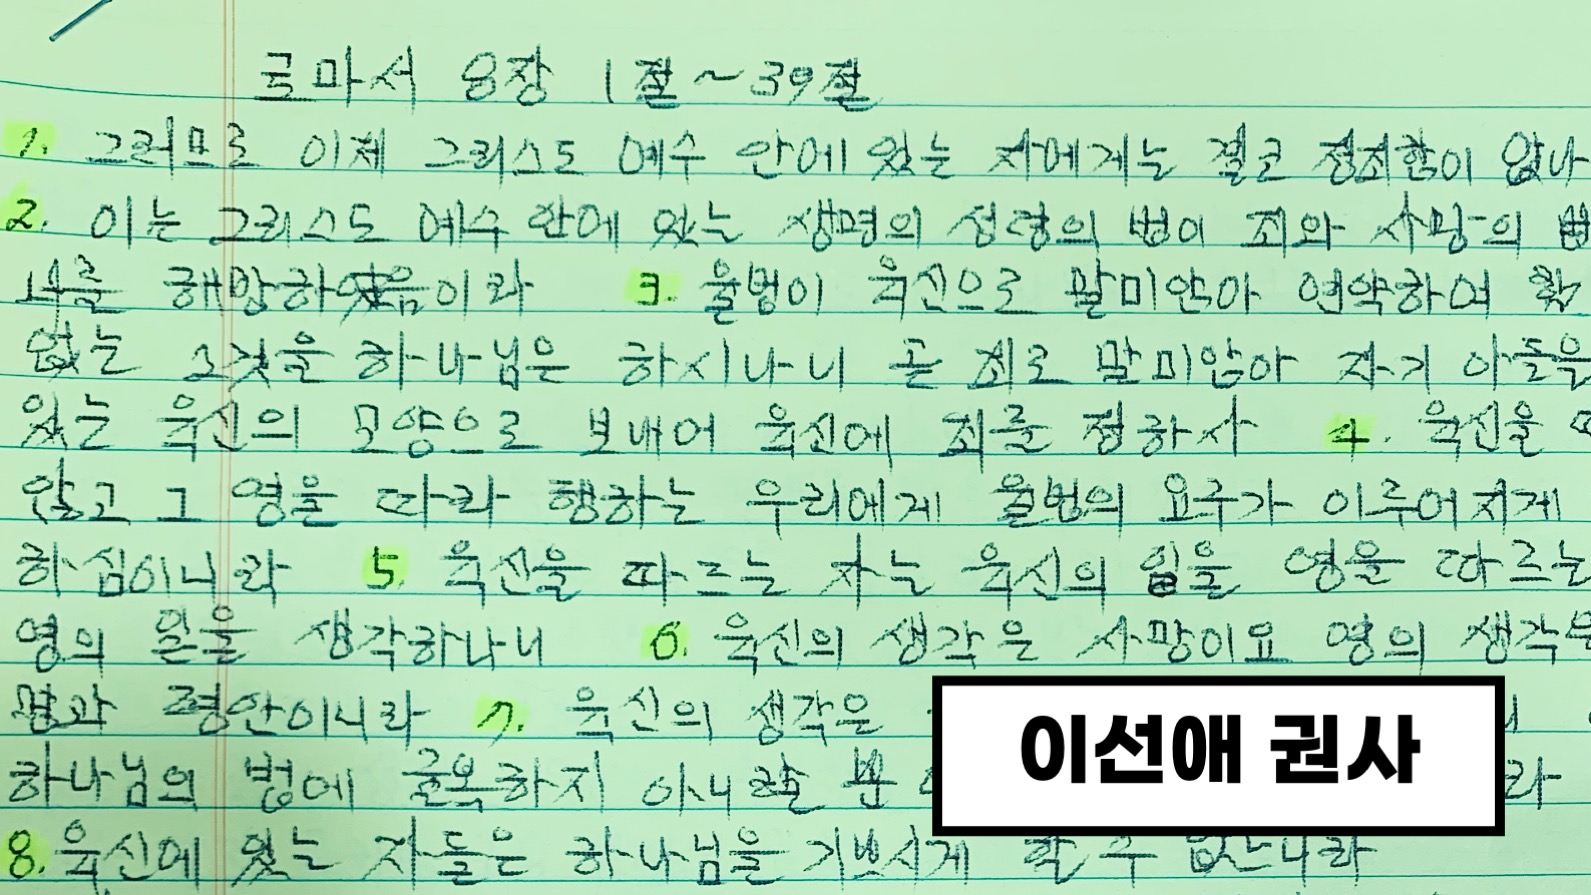 로마서 8장 1절~39절
1. 그러므로 이제 그리스도 예수 안에 있는 자에게는 결코 정죄함이 없나
2. 이는 그리스도 예수 안에 있는 생명의 성령의 법이 죄와 사망의
너를 해방하였음이라 3. 율법이 육신으로 말미암아 연약하여
없는 그것을 하나님은 하시나니 곧 죄로 말미암아 자기 아들을
있는 육신의 모양으로 보내어 육신에 죄를 정하사 4. 육신을
않고 그 영을 따라 행하는 우리에게 율법의 요구가 이루어지게
하심이니라 5. 육신을 따르는 자는 육신의 일을 영을 따르는
영의 일을 생각하나니 6. 육신의 생각은 사망이요 영의 생각은
명과 평안이니라 7. 육신의 생각은
하나님의 법에 굴복하지 아니할 뿐 라
8. 육신에 있는 자들은 하나님을 기쁘시게 할 수 없느니라
이선애 권사